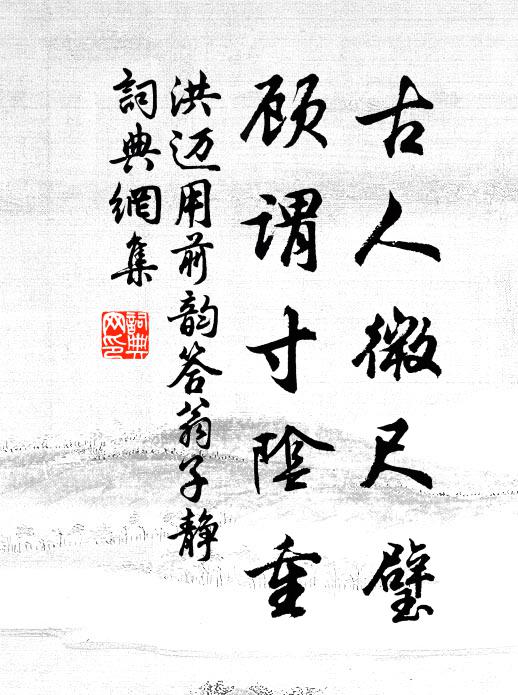 古人微尺璧
顾谓寸陰重
洪迈用前韵答翁子静
詞典網集
詞典网印